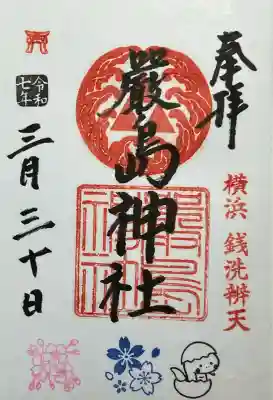 奉拝
横浜 銭洗辨天
嚴島神社
令和七年
三月三十日